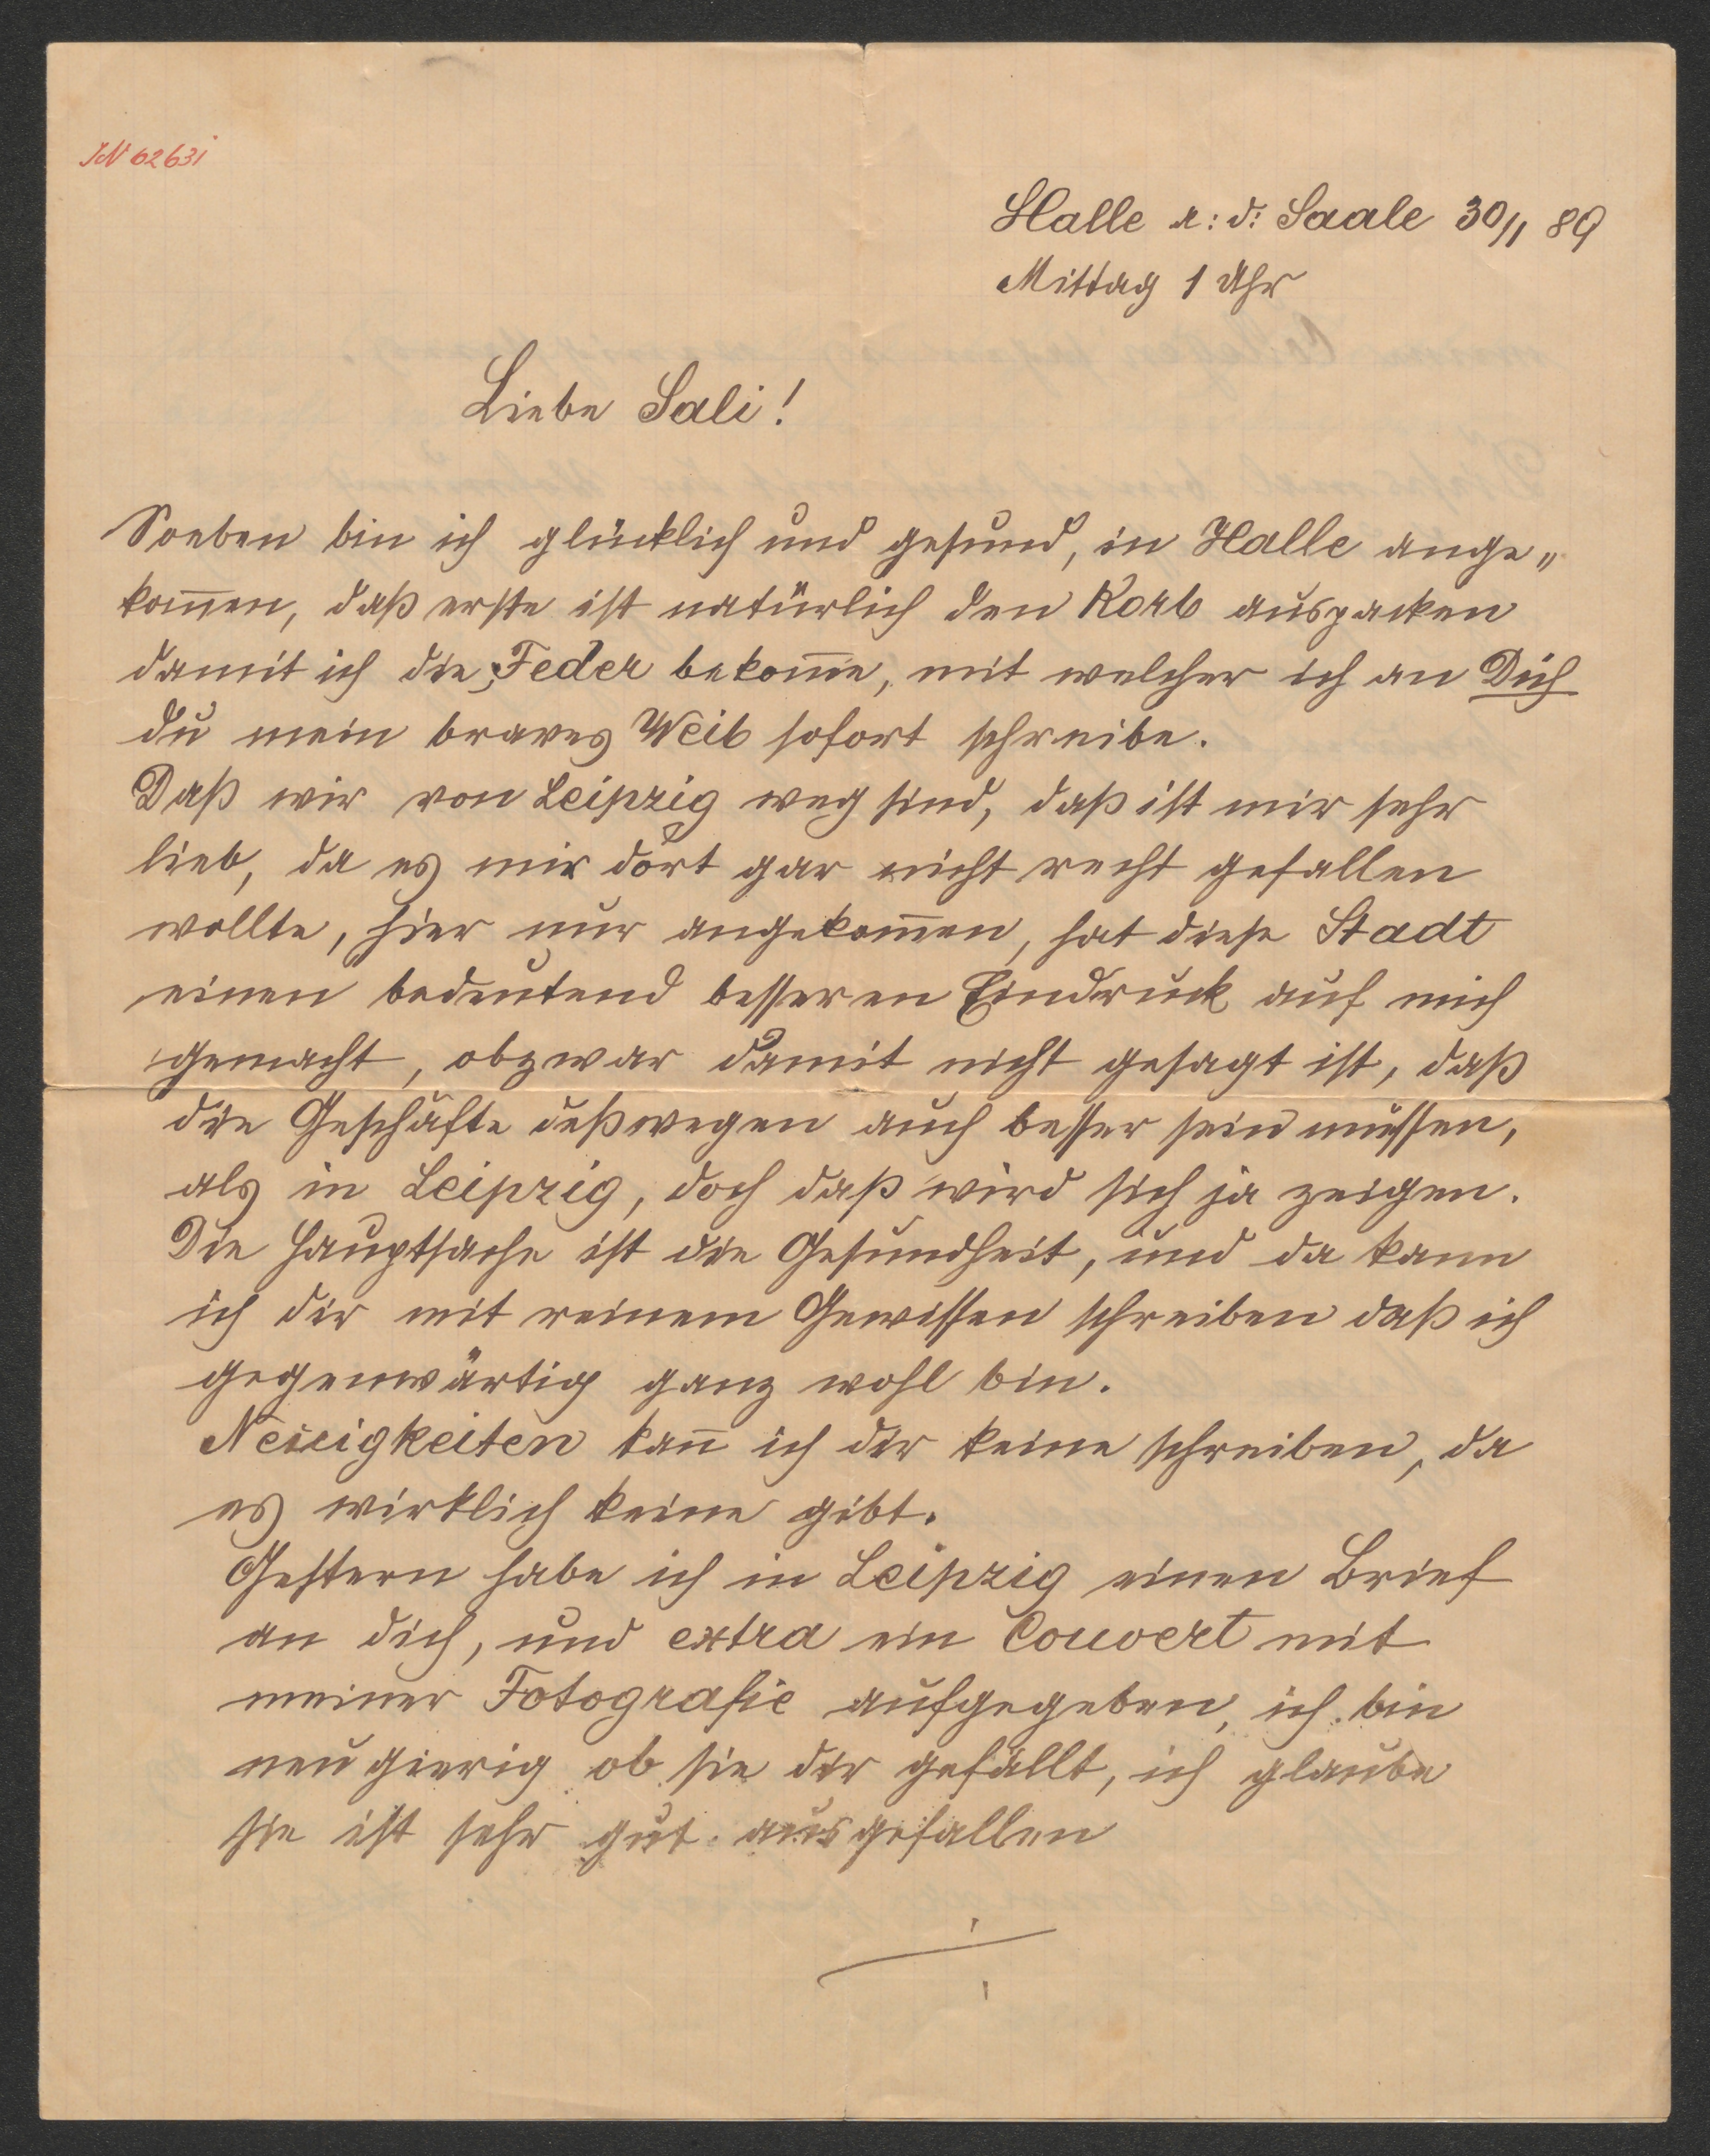 IN 62631
Halle a: d: Saale 30/1 89
Mittag 1 Uhr
Liebe Sali!
Soeben bin ich glücklich und gesund, in Halle ange„
kom̅en, daß erste ist natürlich den Korb auspacken
damit ich die Feder bekom̅e, mit welcher ich an Dich
du mein braves Weib sofort schreibe.
Daß wir von Leipzig weg sind, daß ist mir sehr
lieb, da es mir dort gar nicht recht gefallen
wollte, hier nur angekom̅en, hat diese Stadt
einen bedeutend besseren Eindruck auf mich
gemacht, obzwar damit nicht gesagt ist, daß
die Geschäfte deßwegen auch besser sein müssen,
als in Leipzig, doch daß wird sich ja zeigen.
Die Hauptsache ist die Gesundheit, und da kann
ich dir mit reinem Gewissen schreiben daß ich
gegenwärtig ganz wohl bin.
Neuigkeiten kan̅ ich dir keine schreiben, da
es wirklich keine gibt.
Gestern habe ich in Leipzig einen Brief
an dich, und extra ein Couvert mit
meiner Fotografie aufgegeben, ich bin
neugierig ob sie dir gefällt, ich glaube
sie ist sehr gut ausgefallen